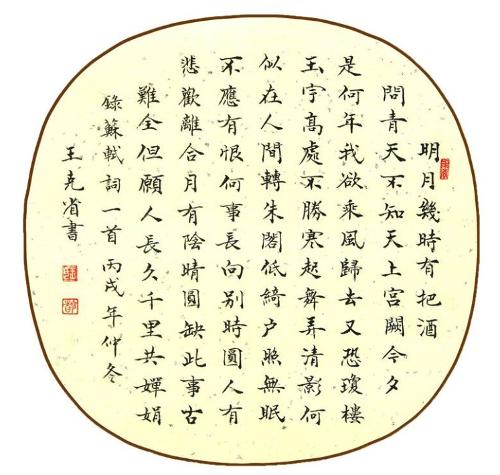 明月幾時有把酒
問青天不知天上宮闕今夕
是何年我欲乘風歸去又恐瓊樓
玉宇高處不勝寒起舞弄清影何
似在人間轉朱閣低綺户照無眠
不應有恨何事長向别時圓人有
悲歡離合月有陰晴圓缺此事古
難全但願人長久千里共嬋娟
錄蘇軾詞一首丙戌年仲冬
王克省書